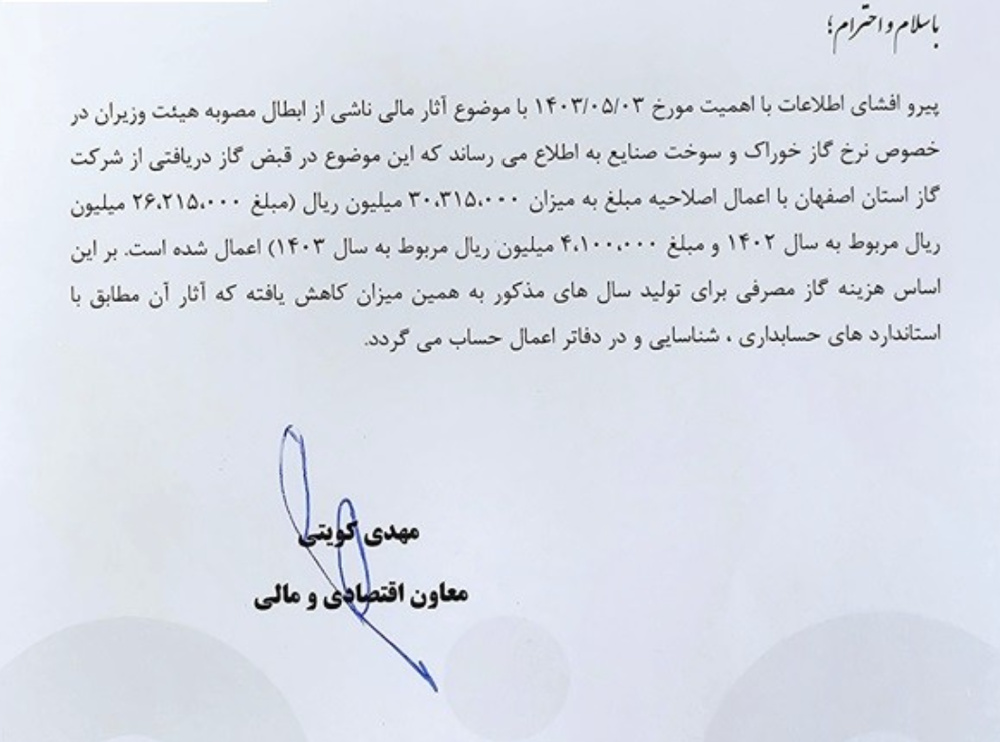 باسلام و احترام؛
پیرو افشای اطلاعات با اهمیت مورخ ۱۴۰۳/۰۵/۰۳ با موضوع آثار مالی ناشی از ابطال مصوبه هیئت وزیران در
خصوص نرخ گاز خوراک و سوخت صنایع به اطلاع می رساند که این موضوع در قبض گاز دریافتی از شرکت
گاز استان اصفهان با اعمال اصلاحیه مبلغ به میزان ۳۰،۳۱۵،۰۰۰ میلیون ریال (مبلغ ۲۶،۲۱۵،۰۰۰ میلیون
ریال مربوط به سال ۱۴۰۲ و مبلغ ۴،۱۰۰،۰۰۰ میلیون ریال مربوط به سال ۱۴۰۳) اعمال شده است. بر این
اساس هزینه گاز مصرفی برای تولید سال های مذکور به همین میزان کاهش یافته که آثار آن مطابق با
استاندارد های حسابداری ، شناسایی و در دفاتر اعمال حساب می گردد.
مهدی کویتی
معاون اقتصادی و مالی